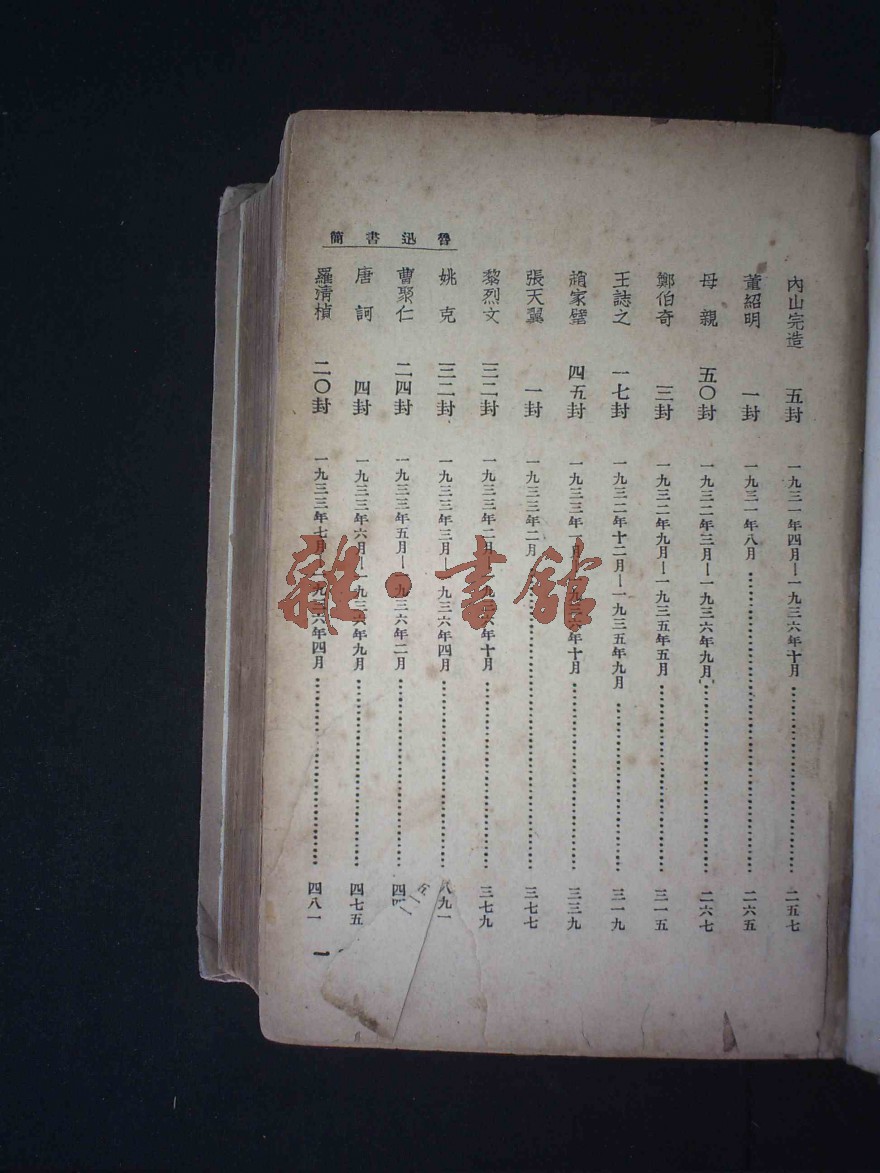 魯迅書簡
內山完造 五封 一九三一年四月—一九三六年十月………………二五七
董紹明 一封 一九三一年八月………………二六五
母親 五〇封 一九三二年三月—一九三六年九月………………二六七
鄭伯奇 三封 一九三二年九月—一九三五年五月………………三一五
王誌之 一七封 一九三二年十二月—一九三五年九月………………三一九
趙家璧 四五封 一九三三年一月—一九三六年十月………………三三九
張天翼 一封 一九三三年二月………………三七七
黎烈文 三二封 一九三三年二月—一九三六年十月………………三七九
姚克 三二封 一九三三年三月—一九三六年四月………………九一
曹聚仁 二四封 一九三三年五月—一九三六年二月………………四
唐訶 四封 一九三三年六月—一九三六年九月………………四七五
羅清楨 二〇封 一九三三年七月—一九三六年四月………………四八一
一
雜·書館